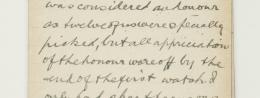 was considered an honour
as twelve of us were specially
picked, but all appreciation
of the honour wore off by the
end of the first watch. I
only had about